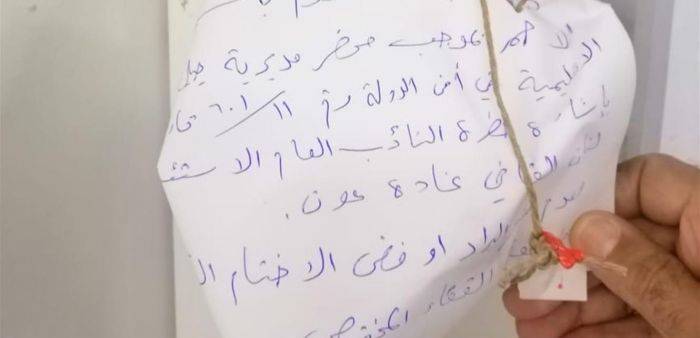 الاحمر بموجب محضر مديرية جبل
الاقليمية في أمن الدولة رقم ١١/٦٠١
بإشارة حضرة النائب العام الاستئنا
القاضي غادة عون.
او فض الاختام
القضاء المختص